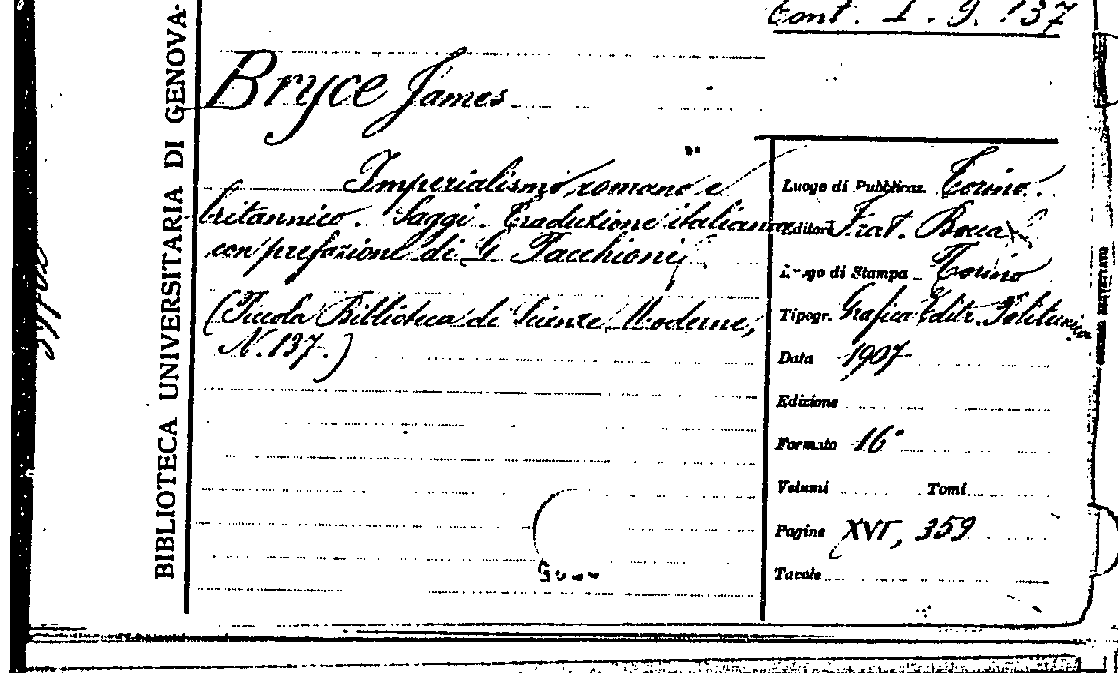 Cont. I. 9. 137
BIBLIOTECA UNIVERSITARIA DI GENOVA
Bryce James
Imperialismo romano e
britannico. Saggi. Traduzione italiana
con prefazione di G. Pacchioni
(Piccola Biblioteca di Scienze Moderne,
N. 137.)
Luogo di Pubblicaz. Torino.
Editore Frat. Bocca
Luogo di Stampa Torino
Tipogr. Grafica Editr. Politecnica
Data 1907
Edizione
Formato 16°
Volumi Tomi
Pagine XVI, 359
Tavole